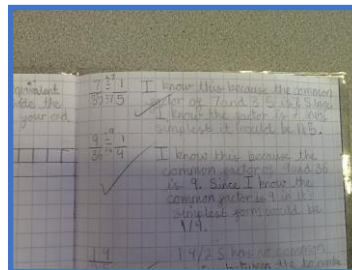 equivalent
the
your
7 ÷7 = 1
35 ÷7 5
I know this because the common
factor of 7 and 35 is
I know the factor is 7 in its
simplest it would be 1/5.
9 ÷9 = 1
36 ÷9 4
I know this because the
common factor of 9 and 36
is 9. Since I know the
common factor is 9 in it's
simplest form would be
1/4.
14
14/25 has no common